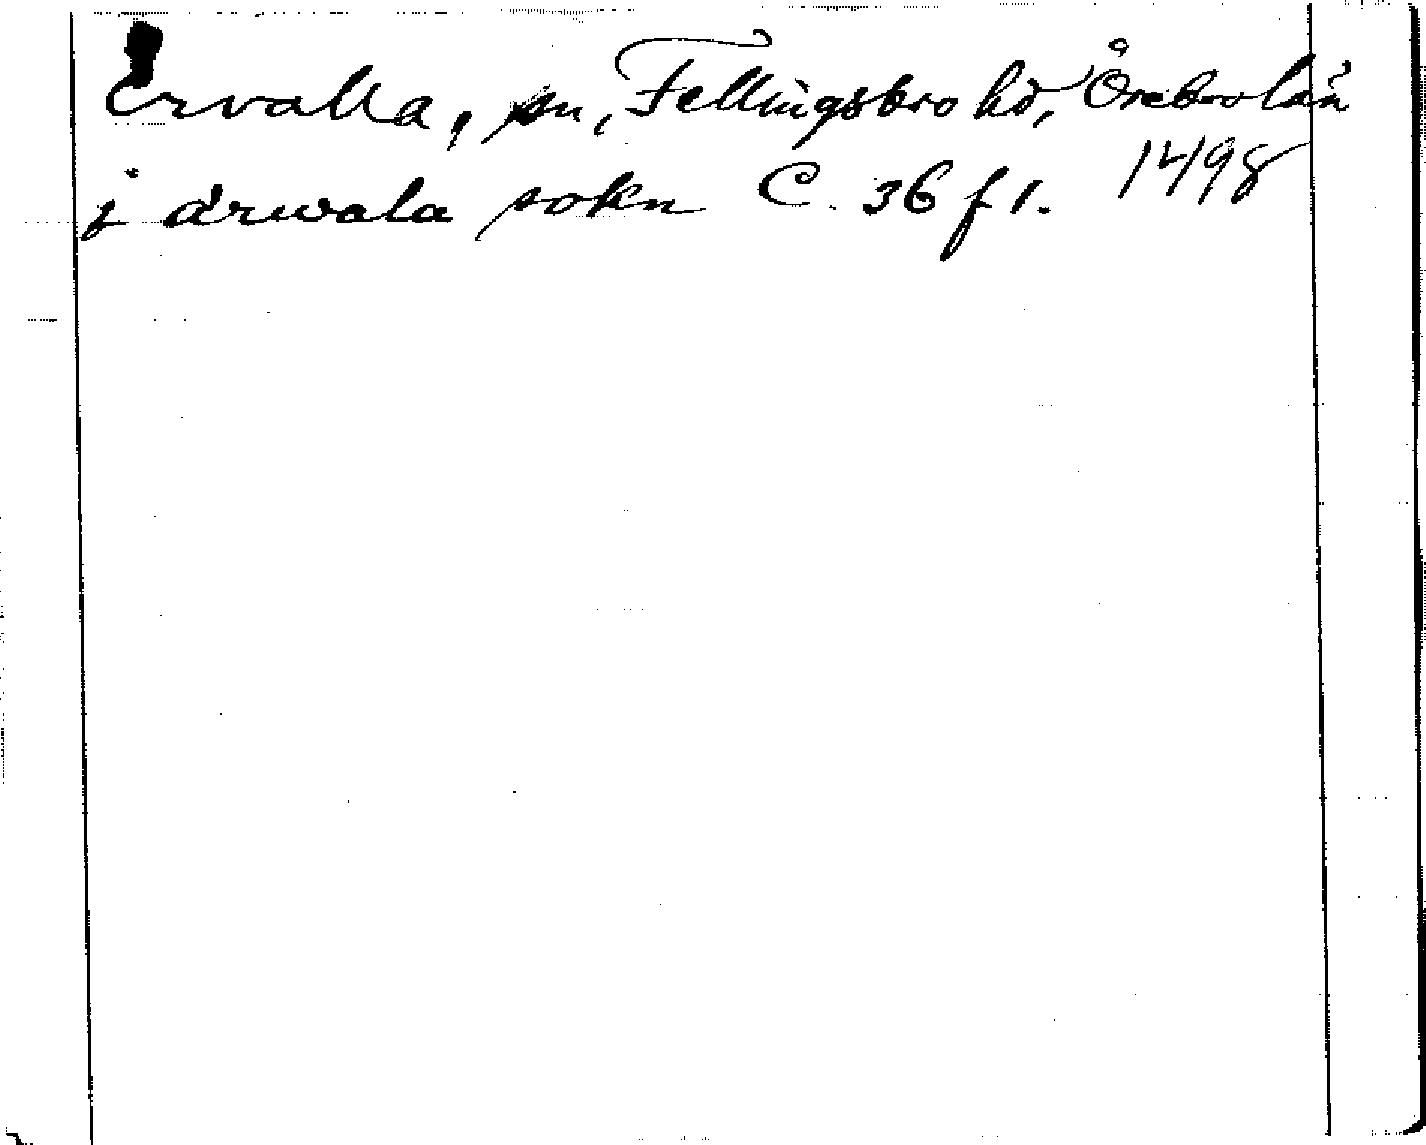 Ervalla, sn, Fellingsbro hd, Örebro län
j ärwala sokn C. 36 f 1. 1498